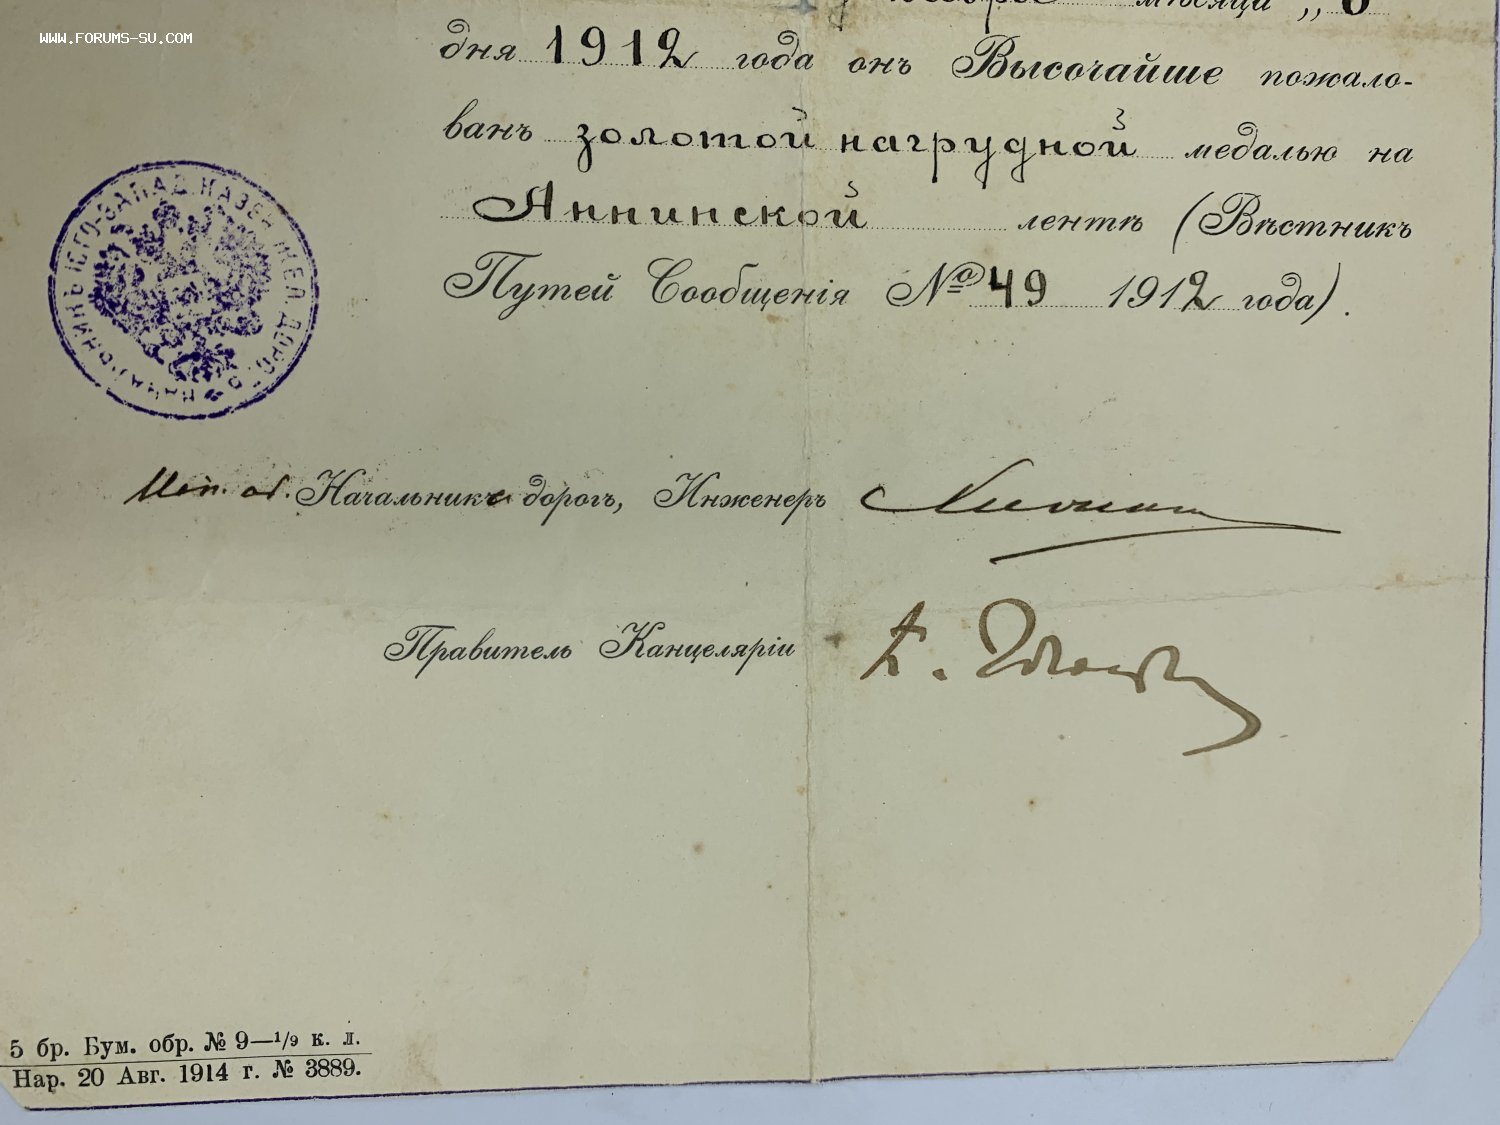 WWW.FORUMS-SU.COM
мѣсяца „6
дня 1912 года онъ Высочайше пожало-
ванъ золотой нагрудной медалью на
Аннинской лентѣ (Вѣстникъ
Путей Сообщенія № 49 1912 года).
НАЧАЛЬНИКЪ ЮГО-ЗАПАД. КАЗЕН. ЖЕЛ. ДОРОГЪ
Начальника дорогъ, Инженеръ
Правитель Канцеляріи
5 бр. Бум. обр. № 9—1/9 к. л.
Нар. 20 Авг. 1914 г. № 3889.